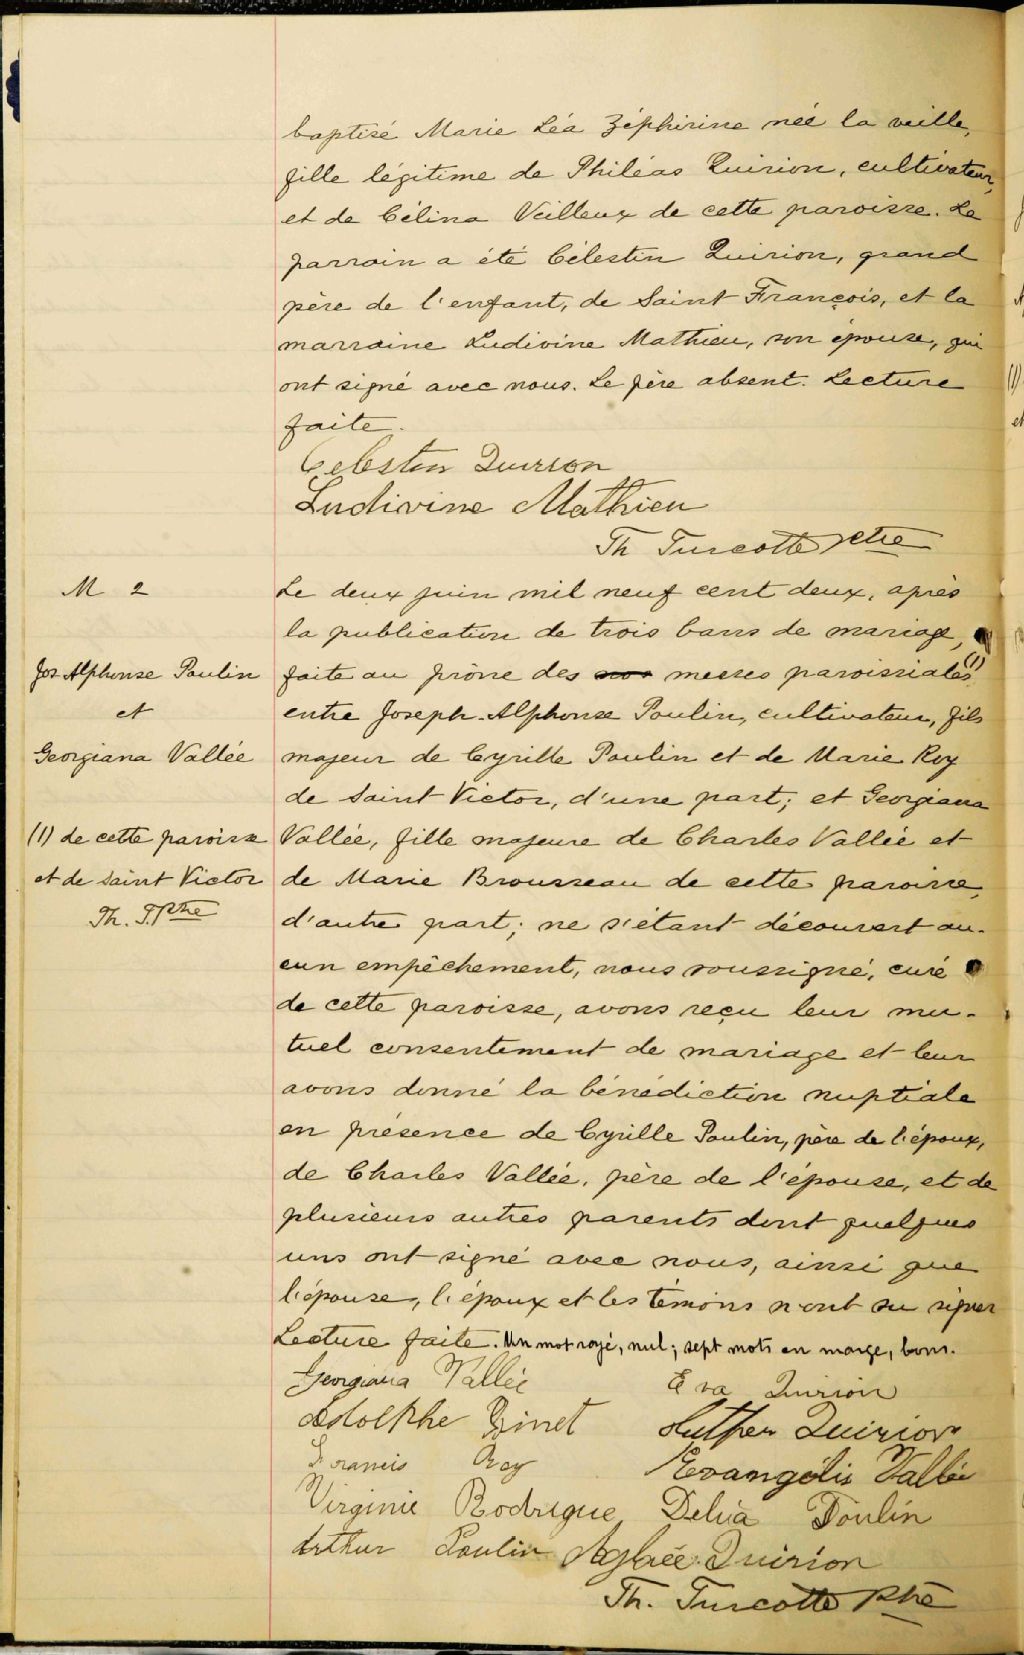 baptisé Marie Léa Zéphirine née la veille,
fille légitime de Philéas Quirion, cultivateur,
et de Célina Veilleux de cette paroisse. Le
parrain a été Célestin Quirion, grand
père de l'enfant, de Saint François, et la
marraine Ludivine Mathieu, son épouse, qui
ont signé avec nous. Le père absent. Lecture
faite.
Celestin Quirion
Ludivine Mathieu
Th Turcotte ptre
M 2
Jos Alphonse Poulin
et
Georgiana Vallée
(1) de cette paroisse
et de Saint Victor
Th. T. Ptre
Le deux juin mil neuf cent deux, après
la publication de trois bans de mariage,
faite au prône des nos messes paroissiales (1)
entre Joseph-Alphonse Poulin, cultivateur, fils
majeur de Cyrille Poulin et de Marie Roy
de Saint Victor, d'une part; et Georgiana
Vallée, fille majeure de Charles Vallée et
de Marie Brousseau de cette paroisse,
d'autre part; ne s'étant découvert au-
cun empêchement, nous soussigné, curé
de cette paroisse, avons reçu leur mu-
tuel consentement de mariage et leur
avons donné la bénédiction nuptiale
en présence de Cyrille Poulin, père de l'époux,
de Charles Vallée, père de l'épouse, et de
plusieurs autres parents dont quelques
uns ont signé avec nous, ainsi que
l'épouse, l'époux et les témoins n'ont su signer
Lecture faite. Un mot rayé, nul; sept mots en marge, bons.
Georgiana Vallée Eva Quirion
Adolphe Quirion
Francis Roy Evangélis Vallée
Virginie Rodrigue Delia Poulin
Arthur Poulin Aglaée Quirion
Th. Turcotte Ptre